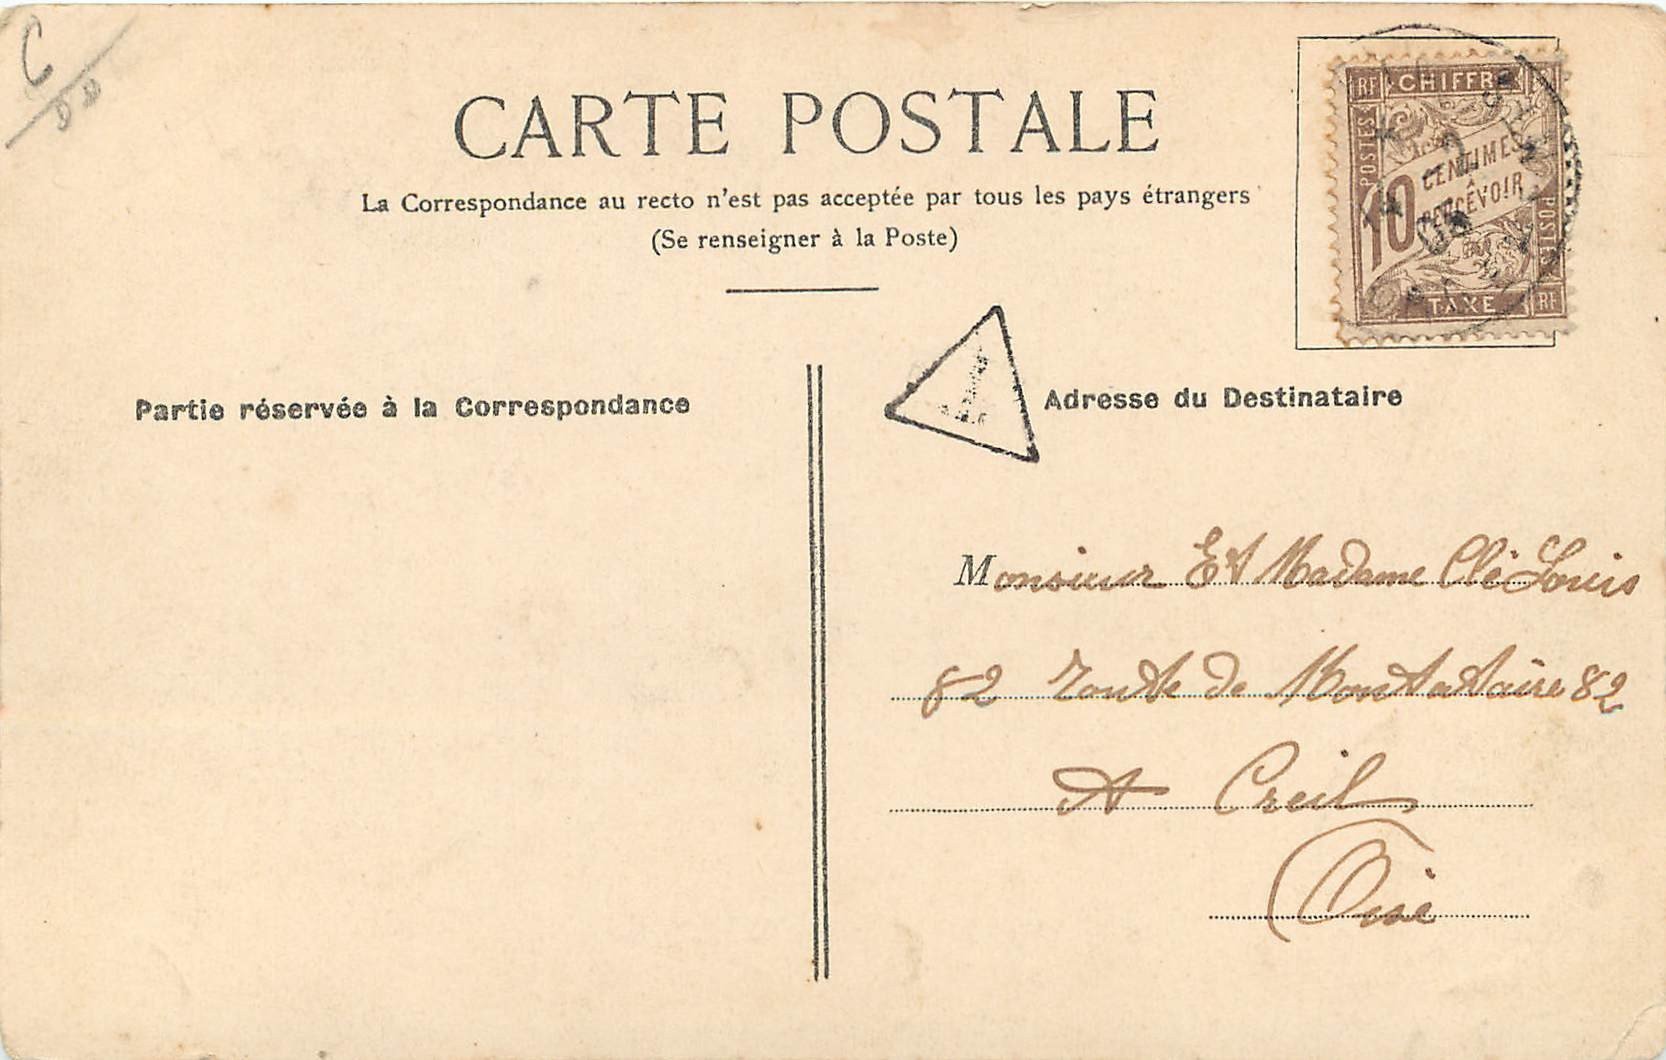 CARTE POSTALE
La Correspondance au recto n'est pas acceptée par tous les pays étrangers
(Se renseigner à la Poste)
RF CHIFFRE
POSTES
10 CENTIMES
À
PERCEVOIR
POSTES
TAXE RF
T
Partie réservée à la Correspondance
Adresse du Destinataire
Monsieur Et Madame Clé Louis
82 route de Montataire 82
A Creil
Oise